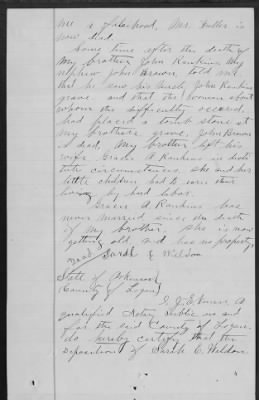 me a falsehood, Mr. Fuller is
now dead.
Some time after the death of
my brother John Rankins My
nephew John Brown, told me
that he saw his Uncle John Rankins
grave and that the woman about
whom the difficulty occured
had placed a tomb stone at
my brothers grave, John Brown
is dead, My brother left his
wife Gracie A Rankins in desti
tute circumstances, she and her
little children had to earn their
living by hard labor.
Gracie A Rankins has
never married since the death
of my brother. She is now
getting old, and has no property,
Sarah C Weldon
State of Arkansas
County of Logan
I, J. E. a
qualified Notary Public in and
for the said County of Logan
do hereby certify that the
deposition of Sarah C. Weldon